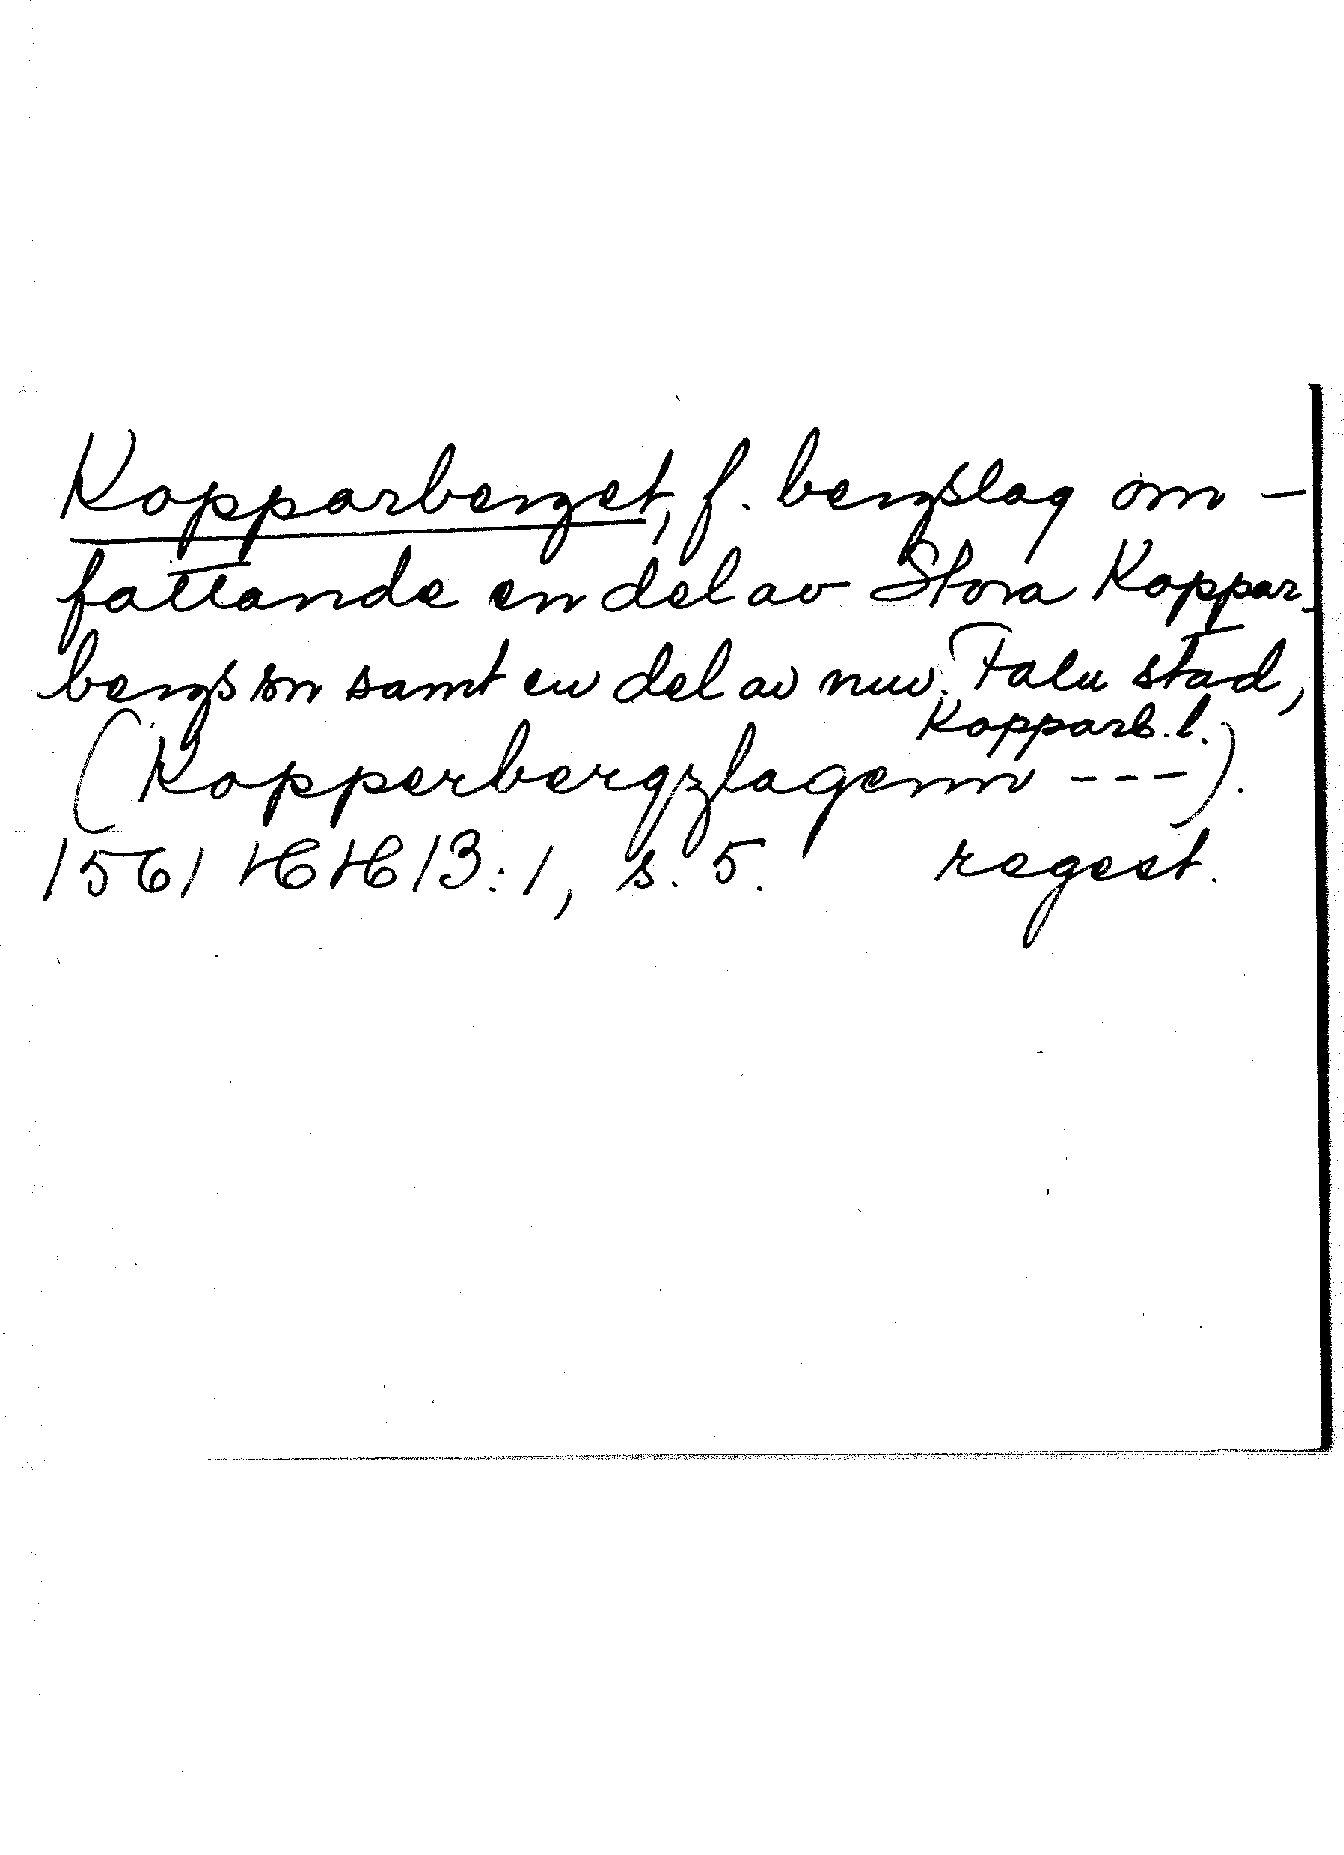 Kopparberget, f. bergslag om-
fattande en del av Stora Koppar-
bergs sn samt en del av nuv. Falu stad,
Kopparb. l.
(Kopperbergzlagenn ---).
1561 HH 13:1, s. 5. regest.